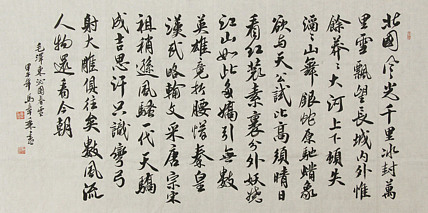 北國风光千里冰封萬
里雪飄望長城内外惟
餘莽〻大河上下頓失
滔〻山舞銀蛇原馳蠟象
欲与天公試比高須晴日
看红裝素裹分外妖嬈
江山如此多嬌引無數
英雄竟折腰惜秦皇
漢武略輸文采唐宗宋
祖稍遜風騷一代天驕
成吉思汗只識彎弓
射大雕俱往矣數風流
人物還看今朝
毛澤東沁園春雪
甲午年